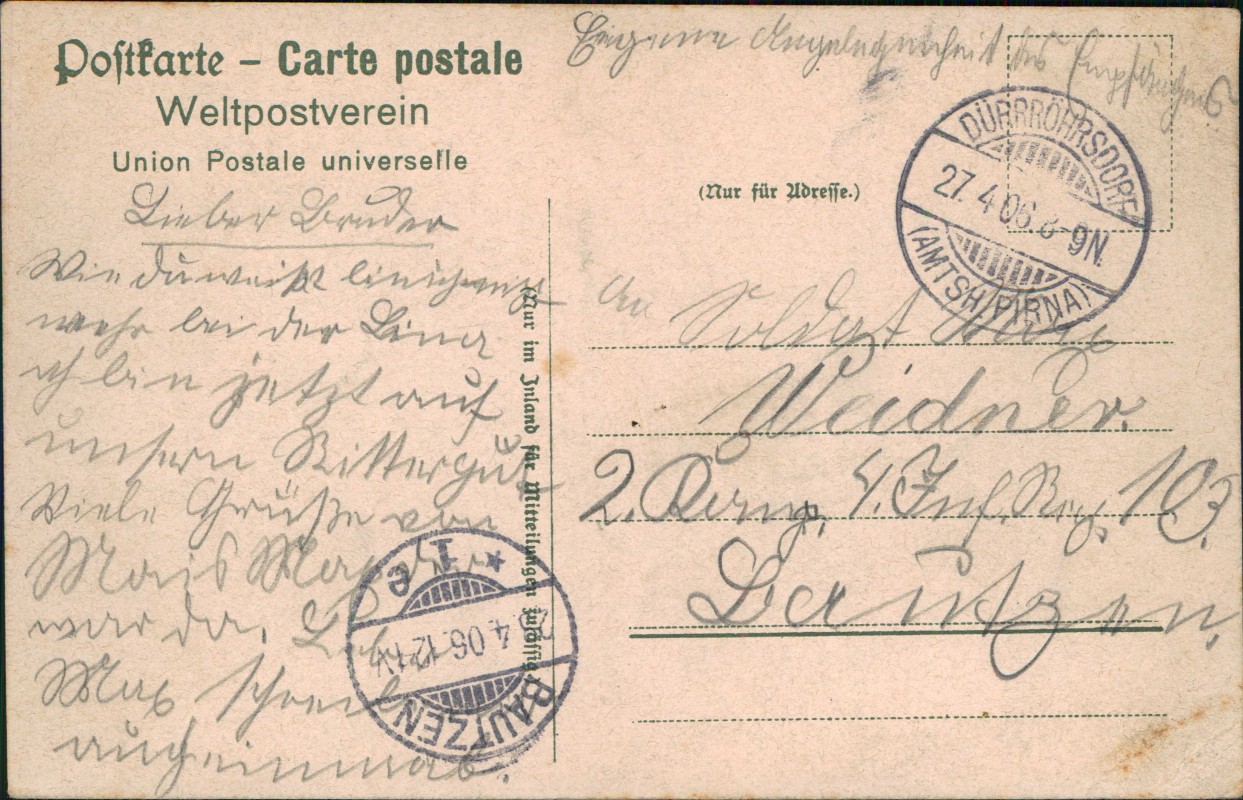 Postkarte – Carte postale
Weltpostverein
Union Postale universelle
Eigene Angelegenheit des Empfängers.
(Nur für Adresse.)
DÜRRRÖHRSDORF
27.4.06.8-9N.
(AMTSH. PIRNA)
Lieber Bruder
Wie du weißt bin ich
mehr bei der
ich bin jetzt auf
unsern Rittergut
Viele Grüße von
war da.
Max schreib
auch einmal.
(Nur im Inland für Mitteilungen zulässig.)
An Soldat Max
Weidner.
2. Komp. 4. Inf. Reg. 103.
Bautzen.
BAUTZEN
4.06.12-1V.
* 1 e